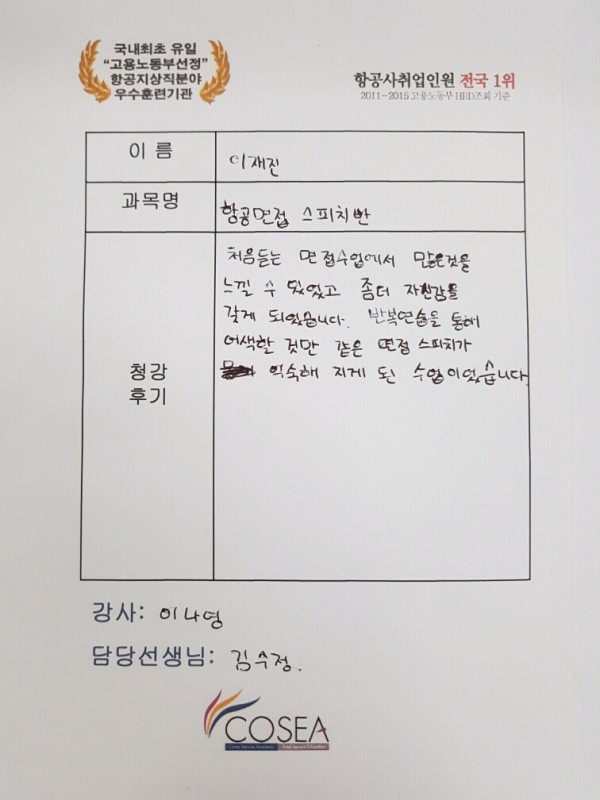 국내최초 유일
“고용노동부선정”
항공지상직분야
우수훈련기관
항공사취업인원 전국 1위
2011~2015 고용노동부 HRD조회 기준
이 름
이재진
과목명
항공면접 스피치반
청강
후기
처음듣는 면접수업에서 많은것을
느낄 수 있었고 좀더 자신감을
갖게 되었습니다. 반복연습을 통해
어색할 것만 같은 면접 스피치가
익숙해 지게 된 수업이었습니다.
강사: 이나영
담당선생님: 김수정.
COSEA
Cosea Service Academy Total Service Education